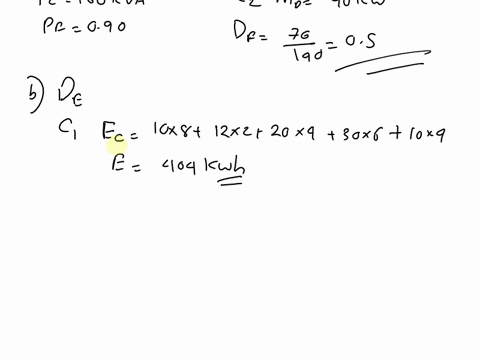 PF = 0.90
DF = 76 / 190 = 0.5
b) DE
C1 EC = 10×8 + 12×2 + 20×9 + 30×6 + 10×9
E = 404 kwh